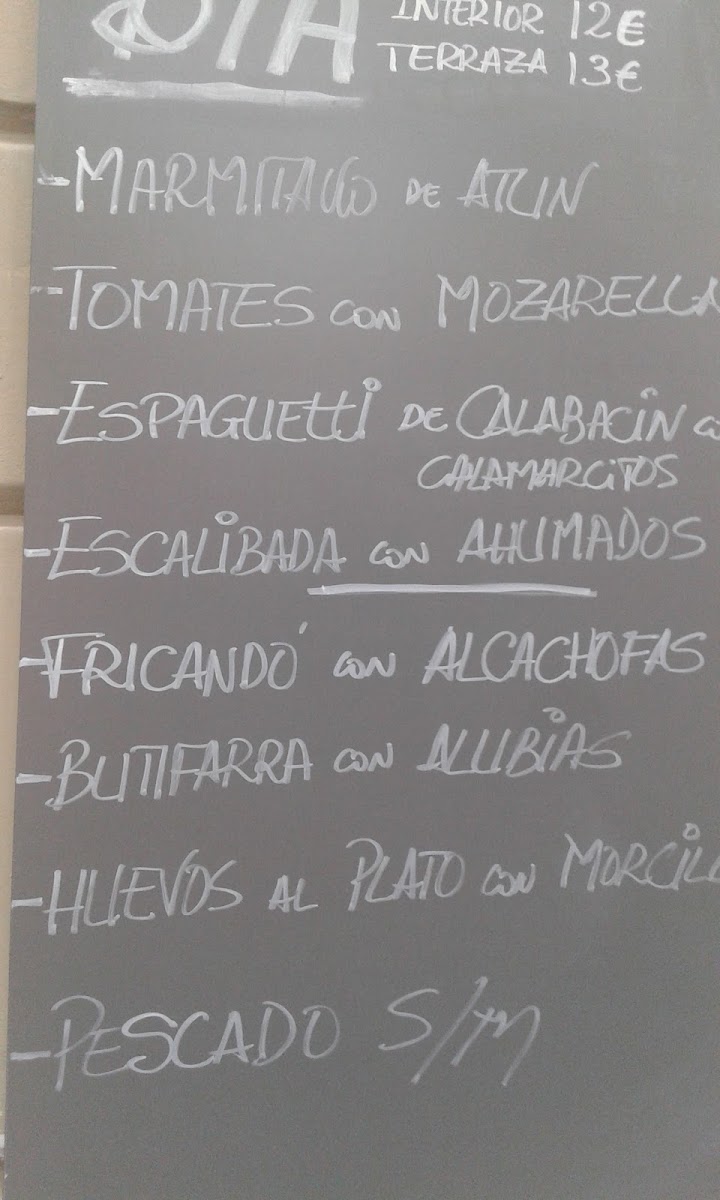 DIA
INTERIOR 12€
TERRAZA 13€
-MARMITACO DE ATUN
-TOMATES CON MOZARELLA
-ESPAGUETTI DE CALABACIN
CALAMARCITOS
-ESCALIBADA CON AHUMADOS
-FRICANDÓ CON ALCACHOFAS
-BUTIFARRA CON ALUBIAS
-HUEVOS AL PLATO CON MORCILL
-PESCADO S/M